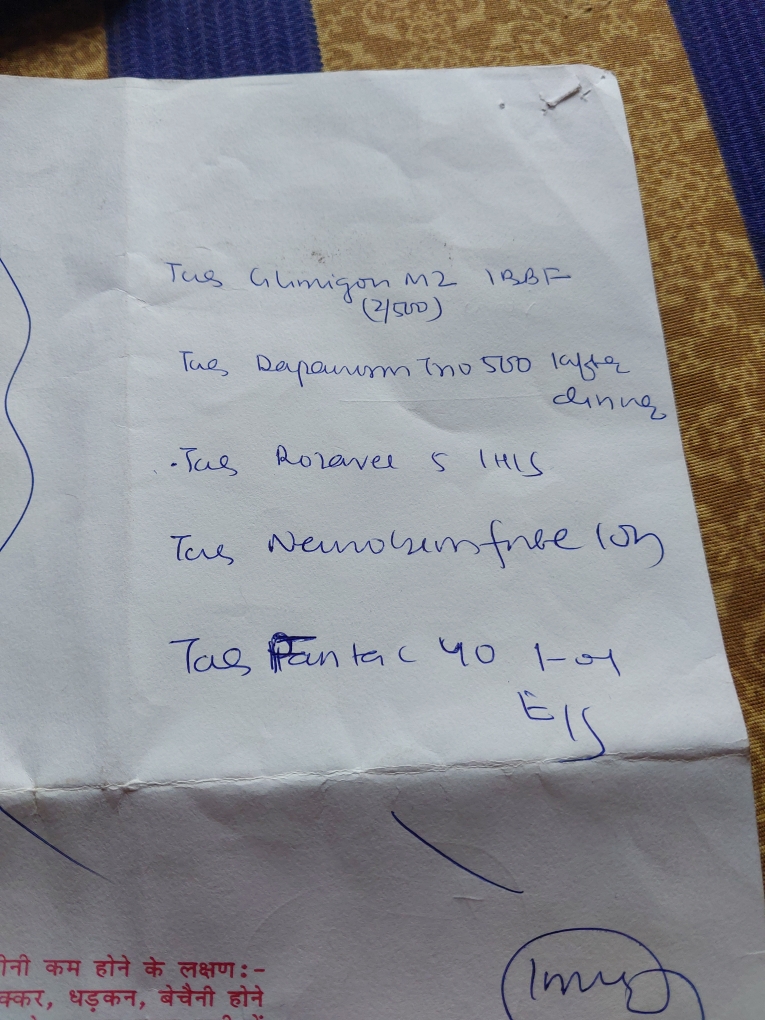 Tab Glimigon M2 1BBF
(2/500)
Tab Dapanorm Trio 500 1 after
dinner
Tab Rozavel 5 1HS
Tab Neurokem forte 1OD
Tab Pantac 40 1-OD
E/S
ीनी कम होने के लक्षण:-
क्कर, धड़कन, बेचैनी होने